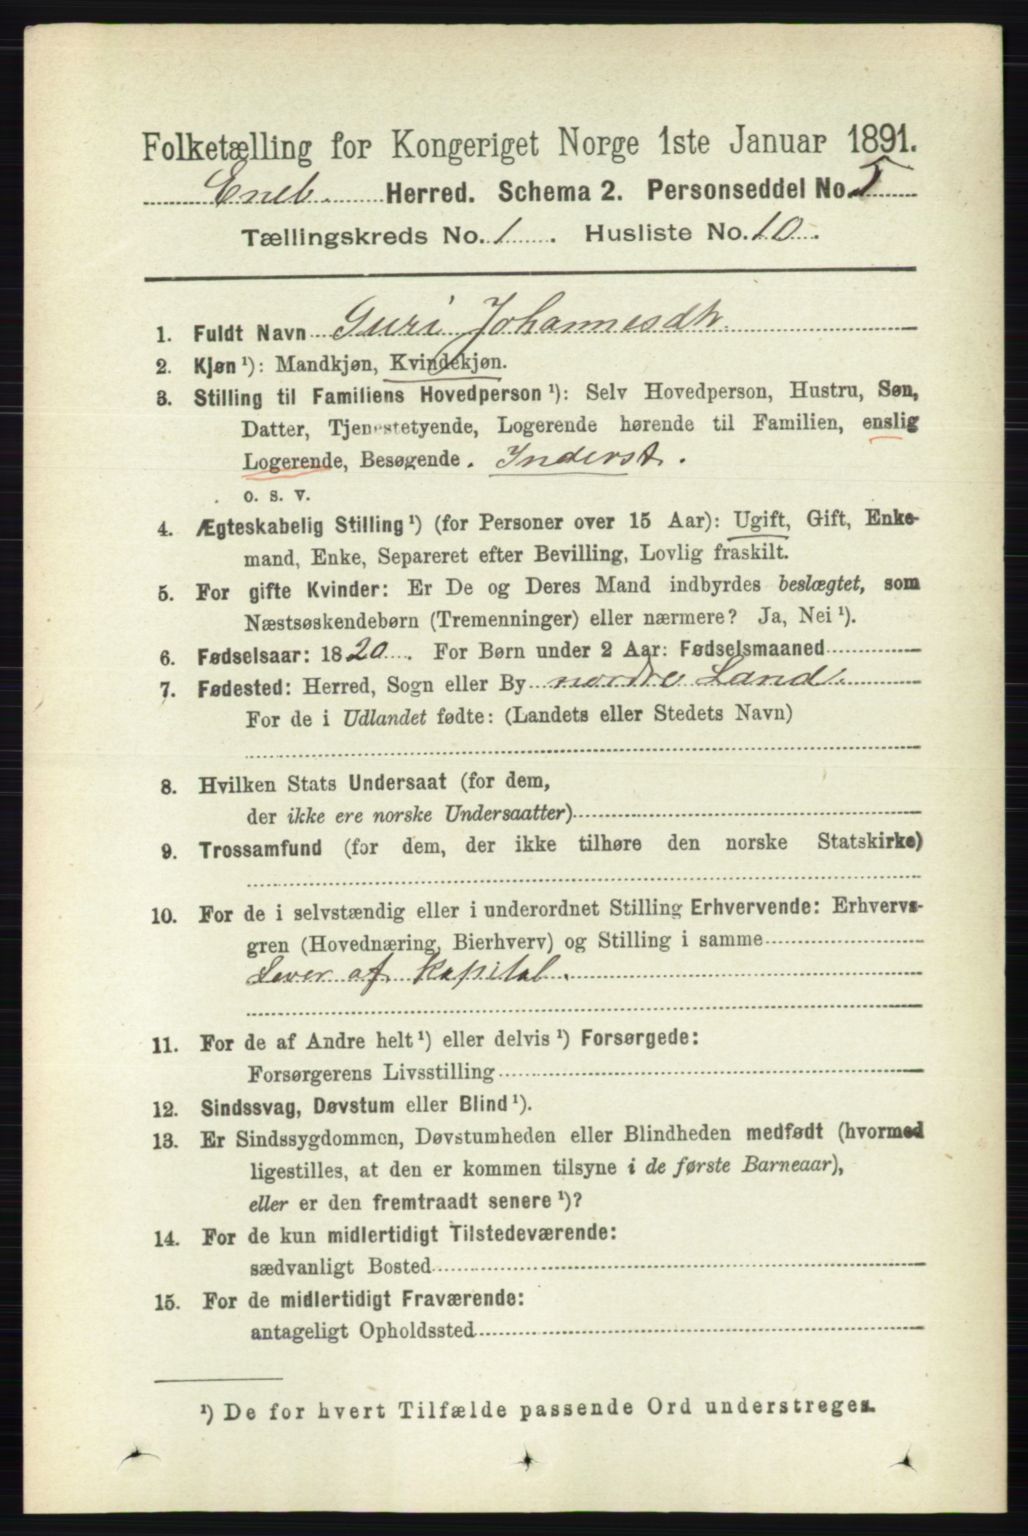 Folketælling for Kongeriget Norge 1ste Januar 1891.
Eneb. Herred. Schema 2. Personseddel No. 5
Tællingskreds No. 1. Husliste No. 10.
1. Fuldt Navn Guri Johannesdtr
2. Kjøn ¹): Mandkjøn, Kvindekjøn.
3. Stilling til Familiens Hovedperson ¹): Selv Hovedperson, Hustru, Søn,
Datter, Tjenestetyende, Logerende hørende til Familien, enslig
Logerende, Besøgende. Inderst.
o. s. v.
4. Ægteskabelig Stilling ¹) (for Personer over 15 Aar): Ugift, Gift, Enke-
mand, Enke, Separeret efter Bevilling, Lovlig fraskilt.
5. For gifte Kvinder: Er De og Deres Mand indbyrdes beslægtet, som
Næstsøskendebørn (Tremenninger) eller nærmere? Ja, Nei ¹).
6. Fødselsaar: 1820. For Børn under 2 Aar: Fødselsmaaned
7. Fødested: Herred, Sogn eller By nordre Land.
For de i Udlandet fødte: (Landets eller Stedets Navn)
8. Hvilken Stats Undersaat (for dem,
der ikke ere norske Undersaatter)
9. Trossamfund (for dem, der ikke tilhøre den norske Statskirke)
10. For de i selvstændig eller i underordnet Stilling Erhvervende: Erhvervs-
gren (Hovednæring, Bierhverv) og Stilling i samme
Lever af kapital.
11. For de af Andre helt ¹) eller delvis ¹) Forsørgede:
Forsørgerens Livsstilling
12. Sindssvag, Døvstum eller Blind ¹).
13. Er Sindssygdommen, Døvstumheden eller Blindheden medfødt (hvormed
ligestilles, at den er kommen tilsyne i de første Barneaar),
eller er den fremtraadt senere ¹)?
14. For de kun midlertidigt Tilstedeværende:
sædvanligt Bosted
15. For de midlertidigt Fraværende:
antageligt Opholdssted
¹) De for hvert Tilfælde passende Ord understreges.